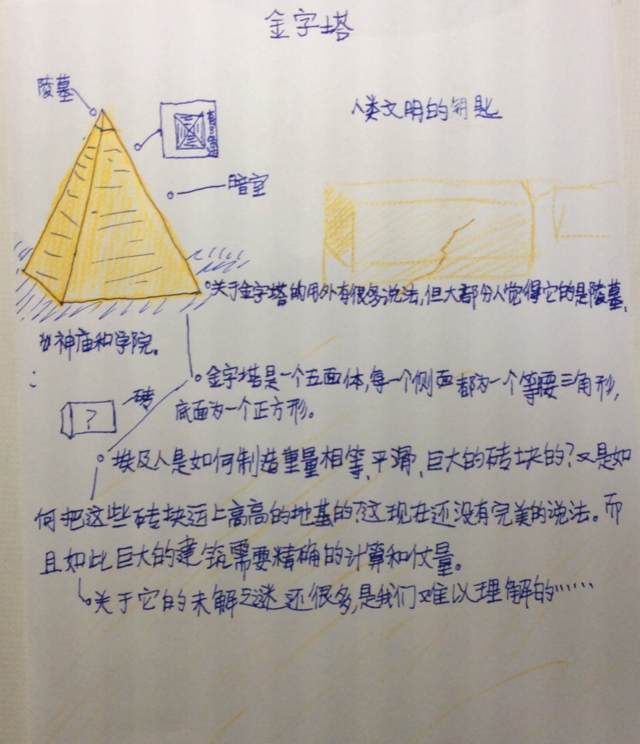 金字塔
陵墓
人类文明的钥匙
暗室
关于金字塔的用外有很多说法,但大部分人觉得它的是陵墓、
神庙和学院。
金字塔是一个五面体,每一个侧面都为一个等腰三角形,
底面为一个正方形。
砖
?
埃及人是如何制造重量相等、平滑、巨大的砖块的?又是如
何把这些砖块运上高高的地基的?这现在还没有完美的说法。而
且如此巨大的建筑需要精确的计算和仗量。
关于它的未解之谜还很多,是我们难以理解的……